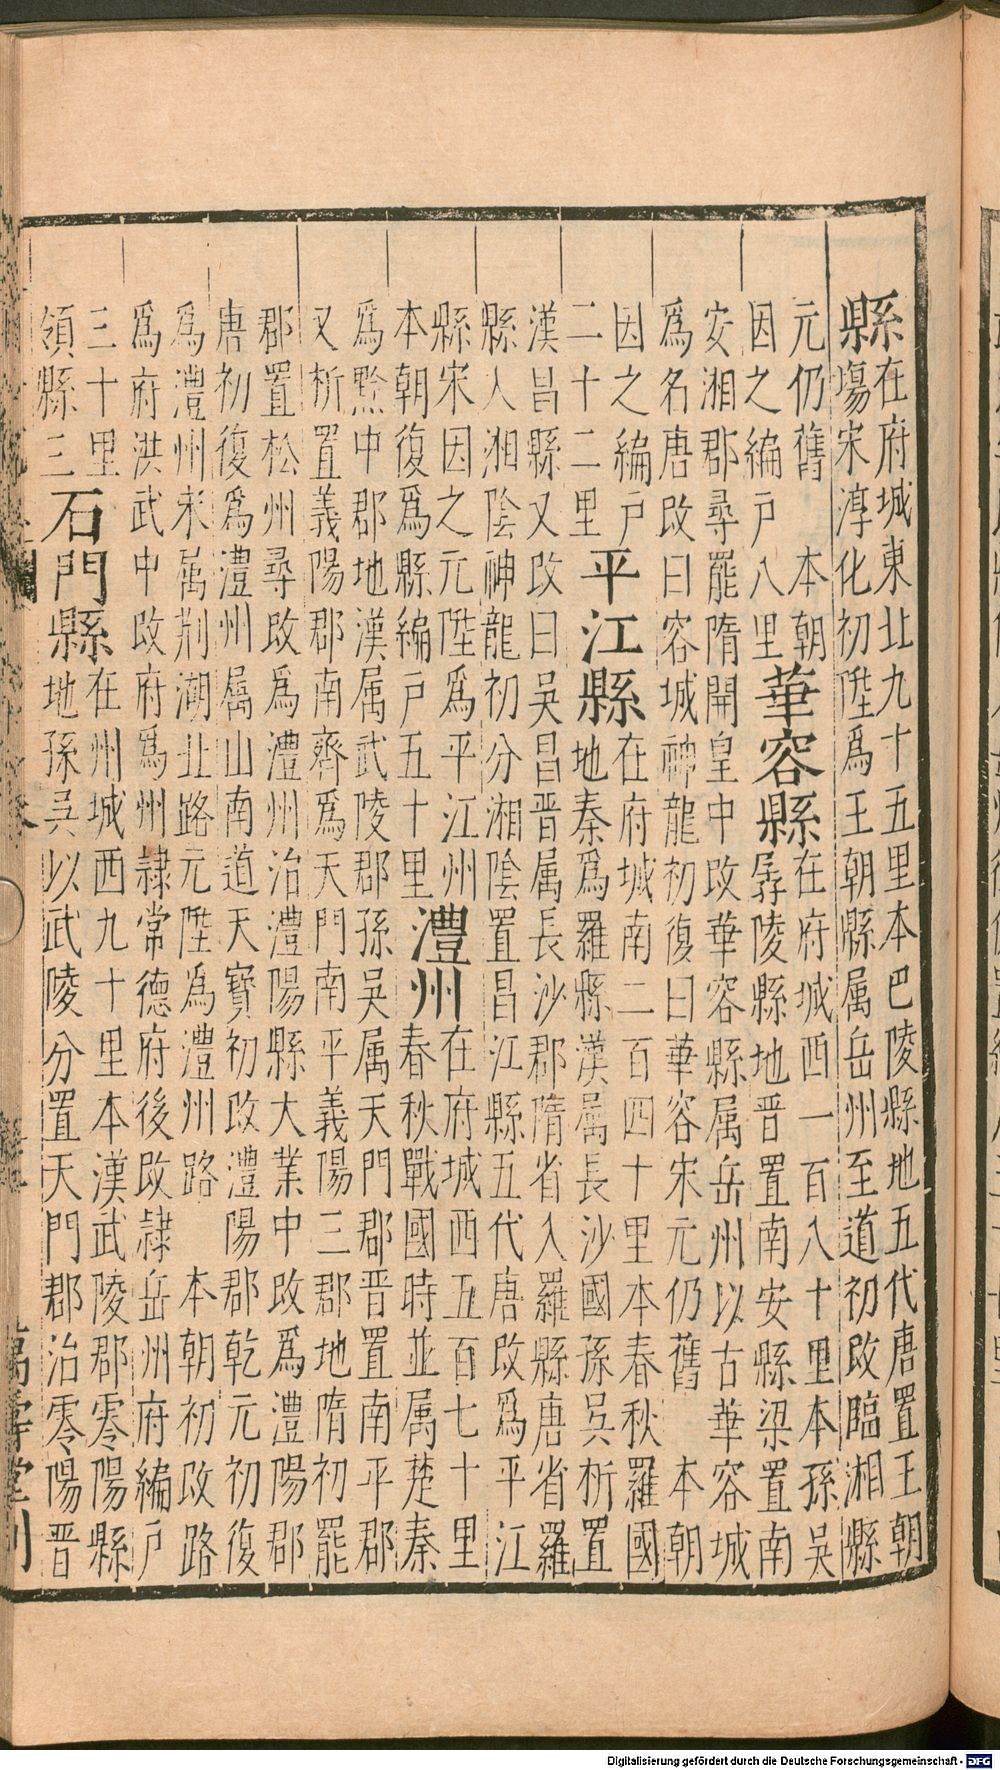 縣
在府城東北九十五里本巴陵縣地五代唐置王朝
塲宋淳化初陞爲王朝縣属岳州至道初改臨湘縣
元仍舊　本朝
因之編戶八里
華容縣
在府城西一百八十里本孫吳
孱陵縣地晉置南安縣梁置南
安湘郡尋罷隋開皇中改華容縣属岳州以古華容城
爲名唐改曰容城神龍初復曰華容宋元仍舊　本朝
因之編戶
二十二里
平江縣
在府城南二百四十里本春秋羅國
地秦爲羅縣漢属長沙國孫吳析置
漢昌縣又改曰吳昌晉属長沙郡隋省入羅縣唐省羅
縣入湘陰神龍初分湘陰置昌江縣五代唐改爲平江
縣宋因之元陞爲平江州
本朝復爲縣編戶五十里
澧州
在府城西五百七十里
春秋戰國時並属楚秦
爲黔中郡地漢属武陵郡孫吳属天門郡晉置南平郡
又析置義陽郡南齊爲天門南平義陽三郡地隋初罷
郡置松州尋改爲澧州治澧陽縣大業中改爲澧陽郡
唐初復爲澧州属山南道天寳初改澧陽郡乾元初復
爲澧州宋属荆湖北路元陞爲澧州路　本朝初改路
爲府洪武中改府爲州隷常德府後改隷岳州府編戶
三十里
領縣三
石門縣
在州城西九十里本漢武陵郡零陽縣
地孫吳以武陵分置天門郡治零陽晉
萬壽堂刊
Digitalisierung gefördert durch die Deutsche Forschungsgemeinschaft - DFG